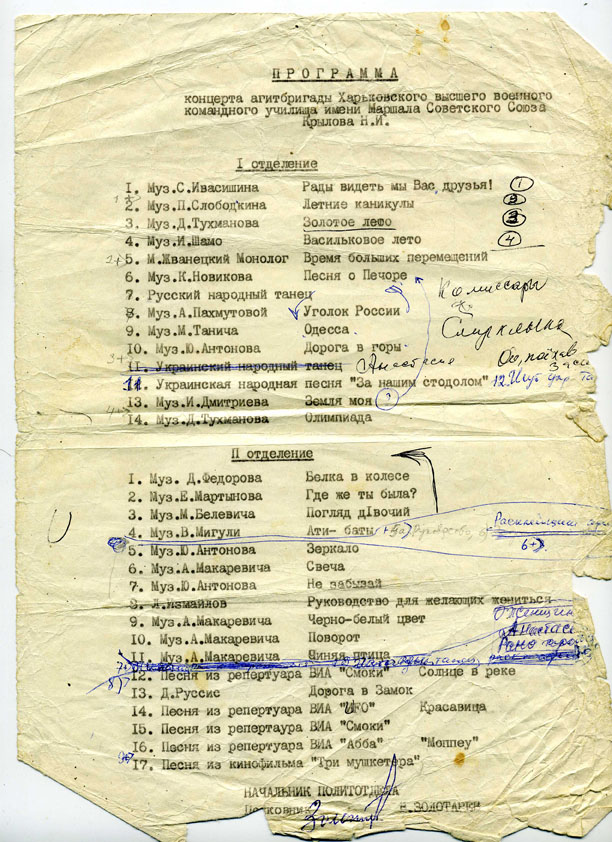 ПРОГРАММА
концерта агитбригады Харьковского высшего военного
командного училища имени Маршала Советского Союза
Крылова Н.И.
I отделение
1. Муз.С.Ивасишина Рады видеть мы Вас, друзья! 1
2. Муз.П.Слободкина Летние каникулы 2
3. Муз.Д.Тухманова Золотое лето 3
4. Муз.И.Шамо Васильковое лето 4
5. М.Жванецкий Монолог Время больших перемещений
6. Муз.К.Новикова Песня о Печоре
Комиссары
7. Русский народный танец
8. Муз.А.Пахмутовой Уголок России
9. Муз.М.Танича Одесса
10. Муз.Ю.Антонова Дорога в горы
11. Украинский народный танец Анастасия
11. Украинская народная песня "За нашим стодолом" 12.
13. Муз.И.Дмитриева Земля моя
14. Муз.Д.Тухманова Олимпиада
II отделение
1. Муз. Д.Федорова Белка в колесе
2. Муз.Е.Мартынова Где же ты была?
3. Муз.М.Белевича Погляд дIвочий
4. Муз.В.Мигули Ати- баты
5. Муз.Ю.Антонова Зеркало 6+
6. Муз.А.Макаревича Свеча
7. Муз.Ю.Антонова Не забывай
8. Л.Измайлов Руководство для желающих жениться
9. Муз.А.Макаревича Черно-белый цвет
10. Муз.А.Макаревича Поворот
11. Муз.А.Макаревича Синяя птица
12. Песня из репертуара ВИА "Смоки" Солнце в реке
13. Д.Руссис Дорога в Замок
14. Песня из репертуара ВИА "UFO" Красавица
15. Песня из репертаура ВИА "Смоки"
16. Песня из репертуара ВИА "Абба" "Моппеу"
17. Песня из кинофильма "Три мушкетера"
НАЧАЛЬНИК ПОЛИТОТДЕЛА
Полковник В.ЗОЛОТАРЕВ